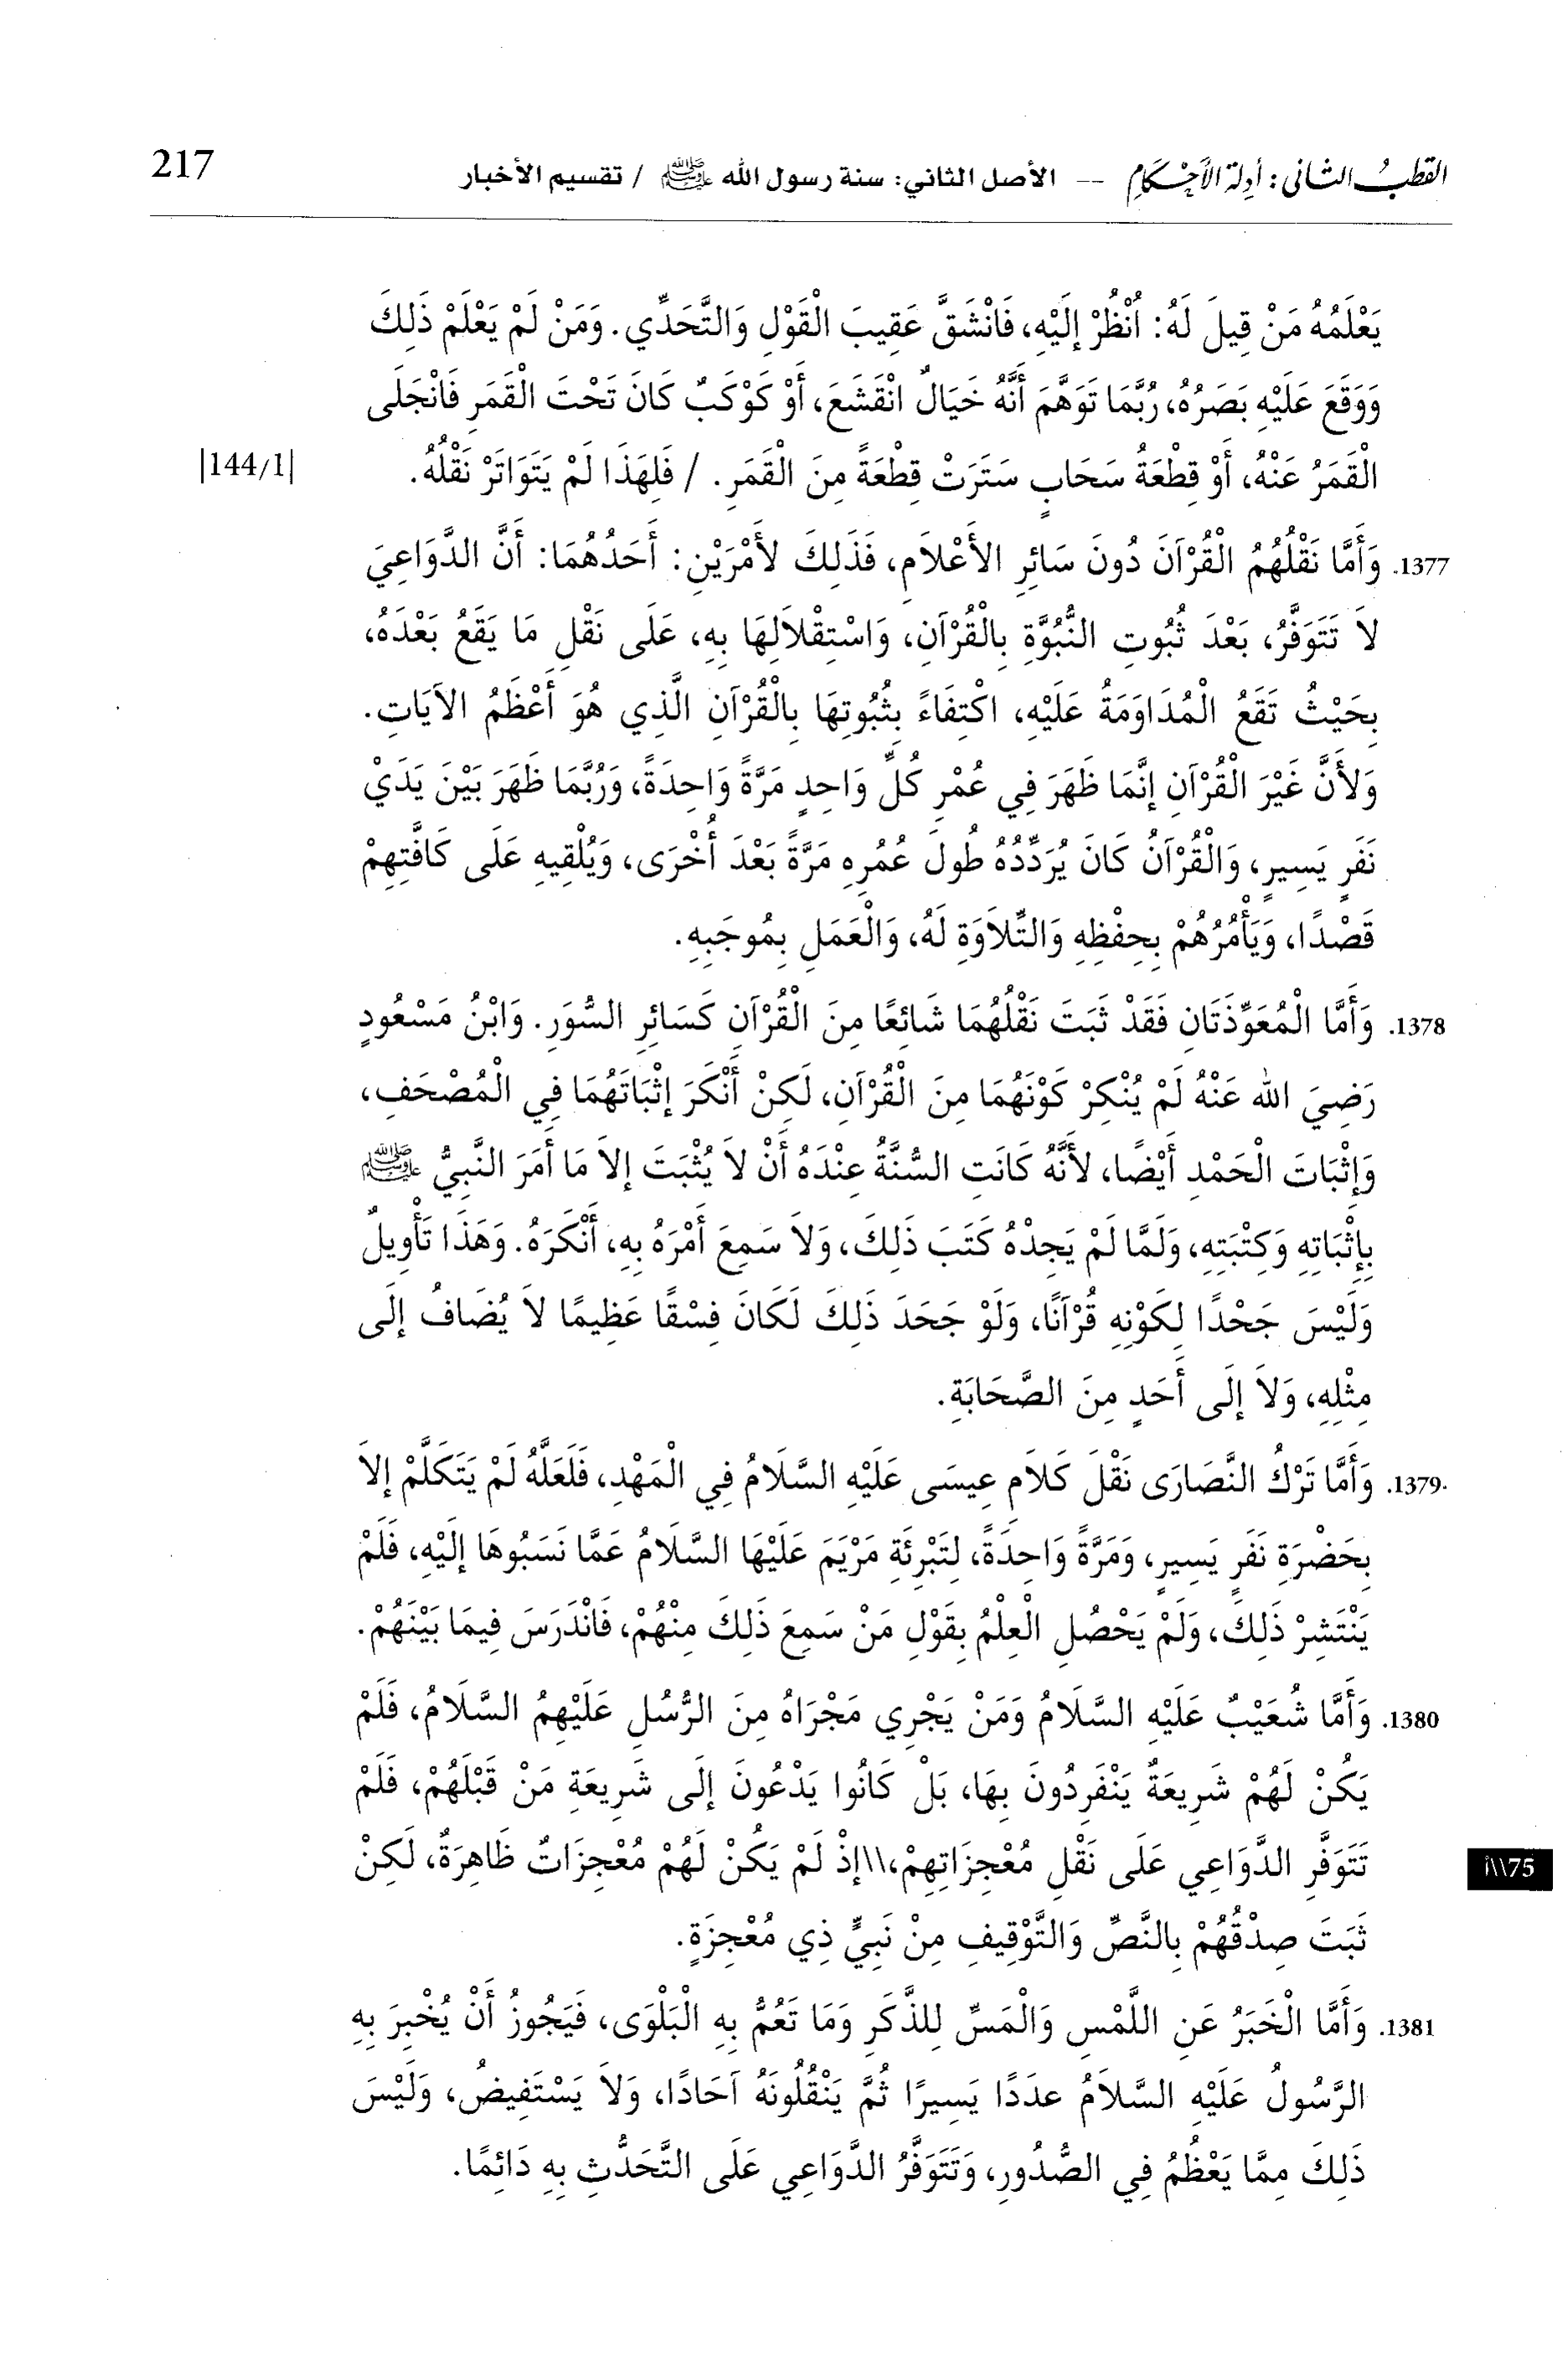 القطب الثاني: أدلة الأحكام -- الأصل الثاني: سنة رسول الله ﷺ / تقسيم الأخبار 217
يَعْلَمُهُ مَنْ قِيلَ لَهُ: اُنْظُرْ إِلَيْهِ، فَانْشَقَّ عَقِيبَ الْقَوْلِ وَالتَّحَدِّي. وَمَنْ لَمْ يَعْلَمْ ذَلِكَ
وَوَقَعَ عَلَيْهِ بَصَرُهُ، رُبَّمَا تَوَهَّمَ أَنَّهُ خَيَالٌ انْقَشَعَ، أَوْ كَوْكَبٌ كَانَ تَحْتَ الْقَمَرِ فَانْجَلَى
الْقَمَرُ عَنْهُ، أَوْ قِطْعَةُ سَحَابٍ سَتَرَتْ قِطْعَةً مِنَ الْقَمَرِ. / فَلِهَذَا لَمْ يَتَوَاتَرْ نَقْلُهُ. |144/1|
1377. وَأَمَّا نَقْلُهُمُ الْقُرْآنَ دُونَ سَائِرِ الأَعْلَامِ، فَذَلِكَ لأَمْرَيْنِ: أَحَدُهُمَا: أَنَّ الدَّوَاعِيَ
لاَ تَتَوَفَّرُ، بَعْدَ ثُبُوتِ النُّبُوَّةِ بِالْقُرْآنِ، وَاسْتِقْلاَلِهَا بِهِ، عَلَى نَقْلِ مَا يَقَعُ بَعْدَهُ،
بِحَيْثُ تَقَعُ الْمُدَاوَمَةُ عَلَيْهِ، اكْتِفَاءً بِثُبُوتِهَا بِالْقُرْآنِ الَّذِي هُوَ أَعْظَمُ الآيَاتِ.
وَلأَنَّ غَيْرَ الْقُرْآنِ إِنَّمَا ظَهَرَ فِي عُمْرِ كُلِّ وَاحِدٍ مَرَّةً وَاحِدَةً، وَرُبَّمَا ظَهَرَ بَيْنَ يَدَيْ
نَفَرٍ يَسِيرٍ، وَالْقُرْآنُ كَانَ يُرَدِّدُهُ طُولَ عُمُرِهِ مَرَّةً بَعْدَ أُخْرَى، وَيُلْقِيهِ عَلَى كَافَّتِهِمْ
قَصْدًا، وَيَأْمُرُهُمْ بِحِفْظِهِ وَالتِّلاَوَةِ لَهُ، وَالْعَمَلِ بِمُوجَبِهِ.
1378. وَأَمَّا الْمُعَوِّذَتَانِ فَقَدْ ثَبَتَ نَقْلُهُمَا شَائِعًا مِنَ الْقُرْآنِ كَسَائِرِ السُّوَرِ. وَابْنُ مَسْعُودٍ
رَضِيَ الله عَنْهُ لَمْ يُنْكِرْ كَوْنَهُمَا مِنَ الْقُرْآنِ، لَكِنْ أَنْكَرَ إِثْبَاتَهُمَا فِي الْمُصْحَفِ،
وَإِثْبَاتَ الْحَمْدِ أَيْضًا، لأَنَّهُ كَانَتِ السُّنَّةُ عِنْدَهُ أَنْ لاَ يُثْبَتَ إِلاَّ مَا أَمَرَ النَّبِيُّ ﷺ
بِإِثْبَاتِهِ وَكِتْبَتِهِ، وَلَمَّا لَمْ يَجِدْهُ كَتَبَ ذَلِكَ، وَلاَ سَمِعَ أَمْرَهُ بِهِ، أَنْكَرَهُ. وَهَذَا تَأْوِيلٌ
وَلَيْسَ جَحْدًا لِكَوْنِهِ قُرْآنًا، وَلَوْ جَحَدَ ذَلِكَ لَكَانَ فِسْقًا عَظِيمًا لاَ يُضَافُ إِلَى
مِثْلِهِ، وَلاَ إِلَى أَحَدٍ مِنَ الصَّحَابَةِ.
1379. وَأَمَّا تَرْكُ النَّصَارَى نَقْلَ كَلَامِ عِيسَى عَلَيْهِ السَّلَامُ فِي الْمَهْدِ، فَلَعَلَّهُ لَمْ يَتَكَلَّمْ إِلاَّ
بِحَضْرَةِ نَفَرٍ يَسِيرٍ، وَمَرَّةً وَاحِدَةً، لِتَبْرِئَةِ مَرْيَمَ عَلَيْهَا السَّلَامُ عَمَّا نَسَبُوهَا إِلَيْهِ، فَلَمْ
يَنْتَشِرْ ذَلِكَ، وَلَمْ يَحْصُلِ الْعِلْمُ بِقَوْلِ مَنْ سَمِعَ ذَلِكَ مِنْهُمْ، فَانْدَرَسَ فِيمَا بَيْنَهُمْ.
1380. وَأَمَّا شُعَيْبٌ عَلَيْهِ السَّلَامُ وَمَنْ يَجْرِي مَجْرَاهُ مِنَ الرُّسُلِ عَلَيْهِمُ السَّلَامُ، فَلَمْ
يَكُنْ لَهُمْ شَرِيعَةٌ يَنْفَرِدُونَ بِهَا، بَلْ كَانُوا يَدْعُونَ إِلَى شَرِيعَةِ مَنْ قَبْلَهُمْ، فَلَمْ
تَتَوَفَّرِ الدَّوَاعِي عَلَى نَقْلِ مُعْجِزَاتِهِمْ،\\إِذْ لَمْ يَكُنْ لَهُمْ مُعْجِزَاتٌ ظَاهِرَةٌ، لَكِنْ 75\\أ
ثَبَتَ صِدْقُهُمْ بِالنَّصِّ وَالتَّوْقِيفِ مِنْ نَبِيٍّ ذِي مُعْجِزَةٍ.
1381. وَأَمَّا الْخَبَرُ عَنِ اللَّمْسِ وَالْمَسِّ لِلذَّكَرِ وَمَا تَعُمُّ بِهِ الْبَلْوَى، فَيَجُوزُ أَنْ يُخْبِرَ بِهِ
الرَّسُولُ عَلَيْهِ السَّلاَمُ عدَدًا يَسِيرًا ثُمَّ يَنْقُلُونَهُ آحَادًا، وَلاَ يَسْتَفِيضُ، وَلَيْسَ
ذَلِكَ مِمَّا يَعْظُمُ فِي الصُّدُورِ، وَتَتَوَفَّرُ الدَّوَاعِي عَلَى التَّحَدُّثِ بِهِ دَائِمًا.